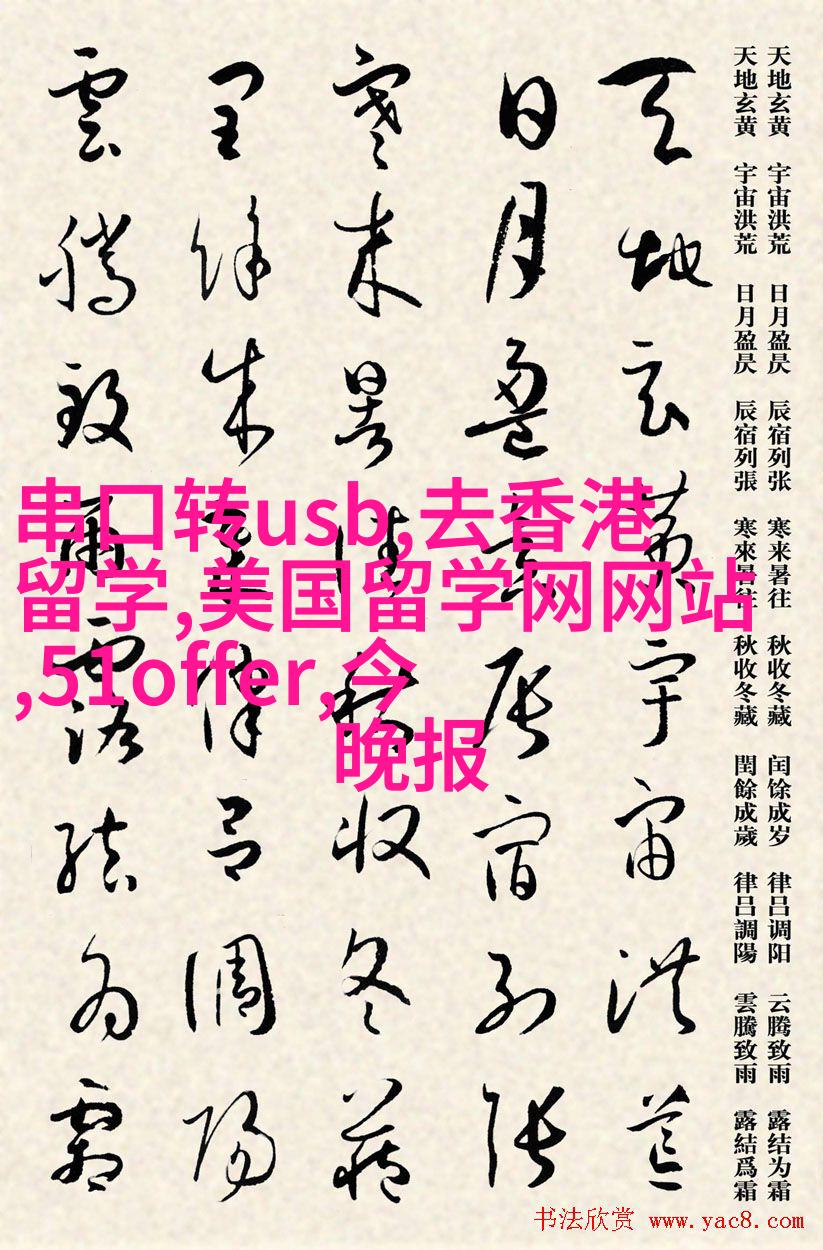 天地玄黄 宇宙洪荒 日月盈昃 辰宿列张 寒来暑往 秋收冬藏 闰馀成岁 律吕调阳 云腾致雨 露结为霜
天地玄黄 宇宙洪荒 日月盈昃 辰宿列張 寒來暑往 秋收冬藏 閏餘成歲 律吕調陽 雲騰致雨 露結爲霜
天地玄黄宇宙洪荒
日月盈昃辰宿列張
寒来暑往秋收冬藏
閏餘成歲律吕調陽
雲騰致雨露結為霜
串口转usb,去香港
留学,美国留学网网站
,51offer,今
晚报
书法欣赏 www.yac8.com